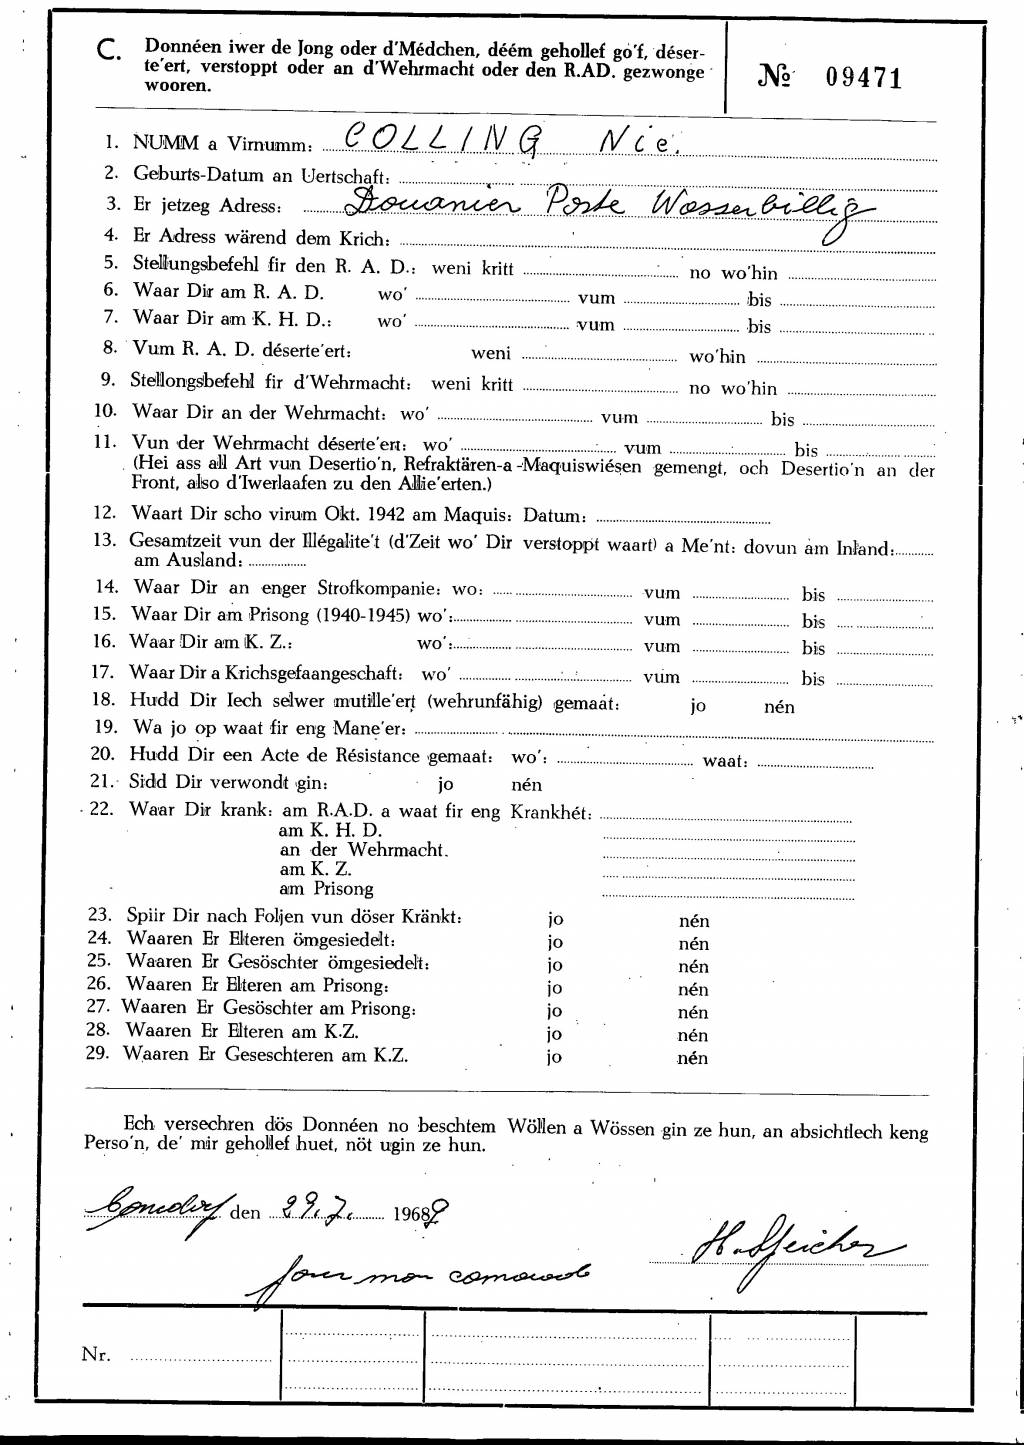 C. Donnéen iwer de Jong oder d'Médchen, déém gehollef gö'f, déser-
te'ert, verstoppt oder an d'Wehrmacht oder den R.AD. gezwonge
wooren.
№ 09471
1. NUMM a Virnumm: COLLING Nic.
2. Geburts-Datum an Uertschaft:
3. Er jetzeg Adress: Douanier Poste Wasserbillig
4. Er Adress wärend dem Krich:
5. Stellungsbefehl fir den R. A. D.: weni kritt no wo'hin
6. Waar Dir am R. A. D. wo' vum bis
7. Waar Dir am K. H. D.: wo' vum bis
8. Vum R. A. D. déserte'ert: weni wo'hin
9. Stellongsbefehl fir d'Wehrmacht: weni kritt no wo'hin
10. Waar Dir an der Wehrmacht: wo' vum bis
11. Vun der Wehrmacht déserte'ert: wo' vum bis
(Hei ass all Art vun Desertio'n, Refraktären-a-Maquiswiésen gemengt, och Desertio'n an der
Front, also d'Iwerlaafen zu den Allie'erten.)
12. Waart Dir scho virum Okt. 1942 am Maquis: Datum:
13. Gesamtzeit vun der Illégalite't (d'Zeit wo' Dir verstoppt waart) a Me'nt: dovun am Inland:
am Ausland:
14. Waar Dir an enger Strofkompanie: wo: vum bis
15. Waar Dir am Prisong (1940-1945) wo': vum bis
16. Waar Dir am K. Z.: wo': vum bis
17. Waar Dir a Krichsgefaangeschaft: wo' vum bis
18. Hudd Dir Iech selwer mutille'ert (wehrunfähig) gemaat: jo nén
19. Wa jo op waat fir eng Mane'er:
20. Hudd Dir een Acte de Résistance gemaat: wo': waat:
21. Sidd Dir verwondt gin: jo nén
22. Waar Dir krank: am R.A.D. a waat fir eng Krankhét:
am K. H. D.
an der Wehrmacht.
am K. Z.
am Prisong
23. Spiir Dir nach Foljen vun döser Kränkt: jo nén
24. Waaren Er Elteren ömgesiedelt: jo nén
25. Waaren Er Gesöschter ömgesiedelt: jo nén
26. Waaren Er Elteren am Prisong: jo nén
27. Waaren Er Gesöschter am Prisong: jo nén
28. Waaren Er Elteren am K.Z. jo nén
29. Waaren Er Geseschteren am K.Z. jo nén
Ech versechren dös Donnéen no beschtem Wöllen a Wössen gin ze hun, an absichtlech keng
Perso'n, de' mir gehollef huet, nöt ugin ze hun.
den 29.7. 1968
pour mon camarade
Nr.